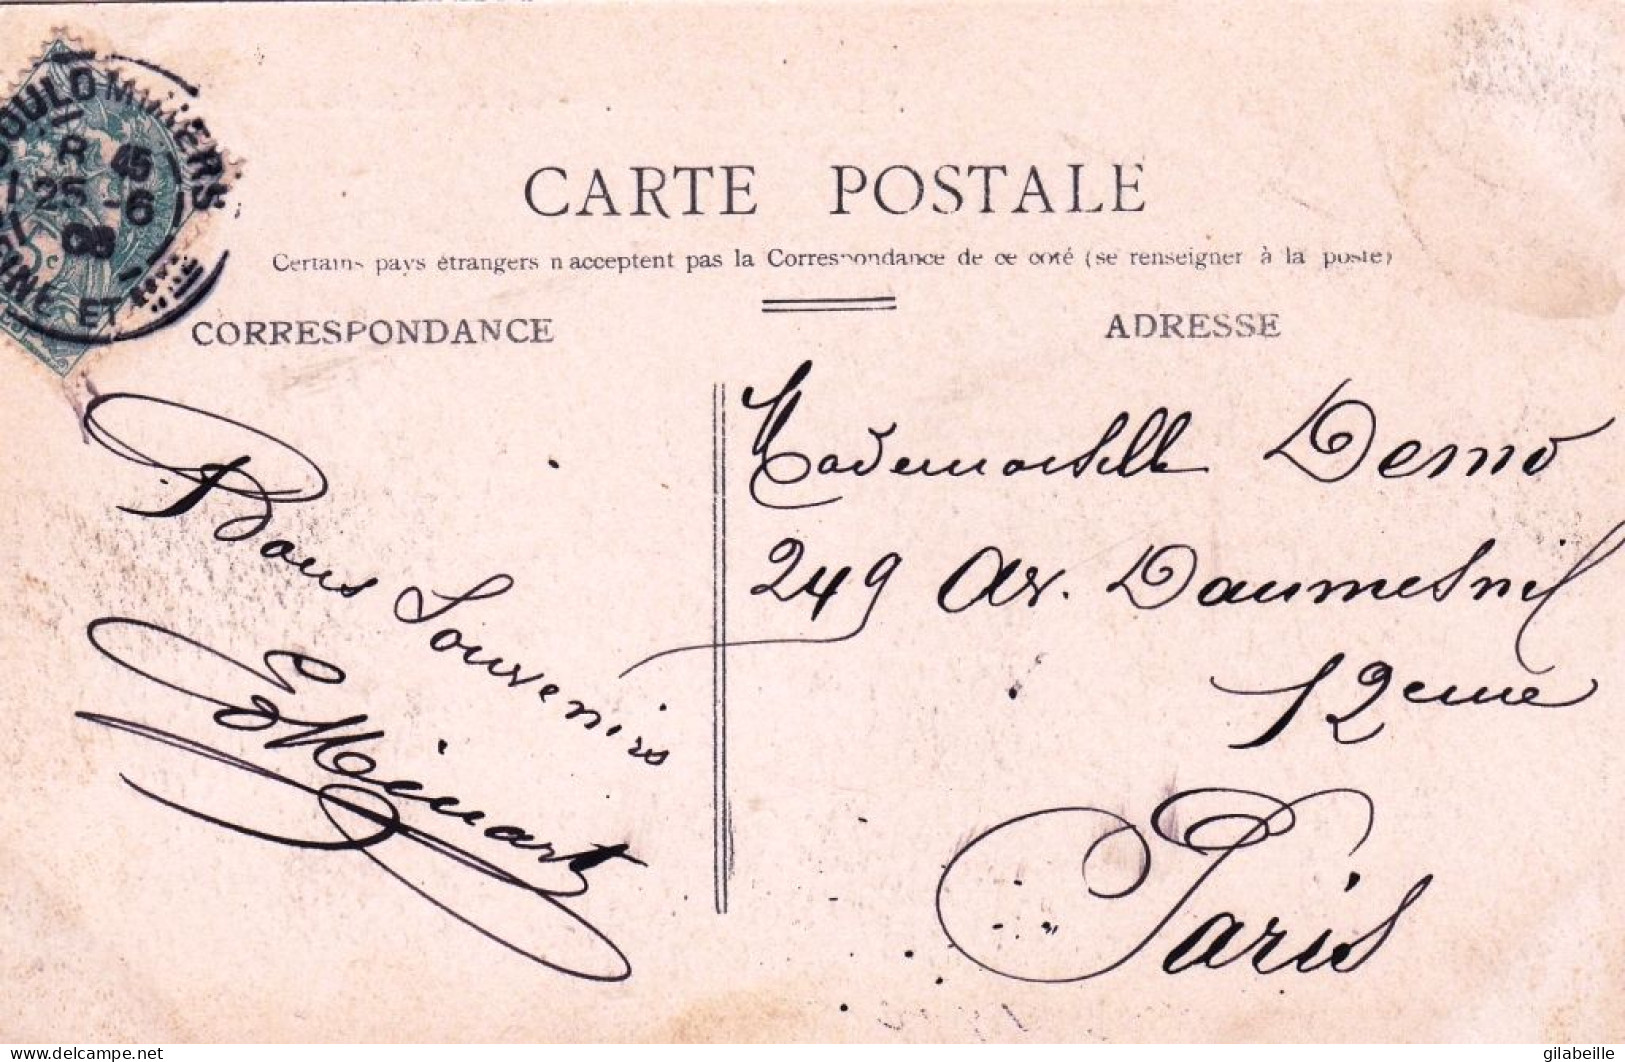 COULOMMIERS
8 45
25 - 6
08
SEINE ET MARNE
5c
CARTE POSTALE
Certains pays étrangers n'acceptent pas la Correspondance de ce coté (se renseigner à la poste)
CORRESPONDANCE
Bons Souvenirs
EMinart
ADRESSE
Mademoiselle Demo
249 Av. Daumesnil
12eme
Paris
delcampe.net
gilabeille